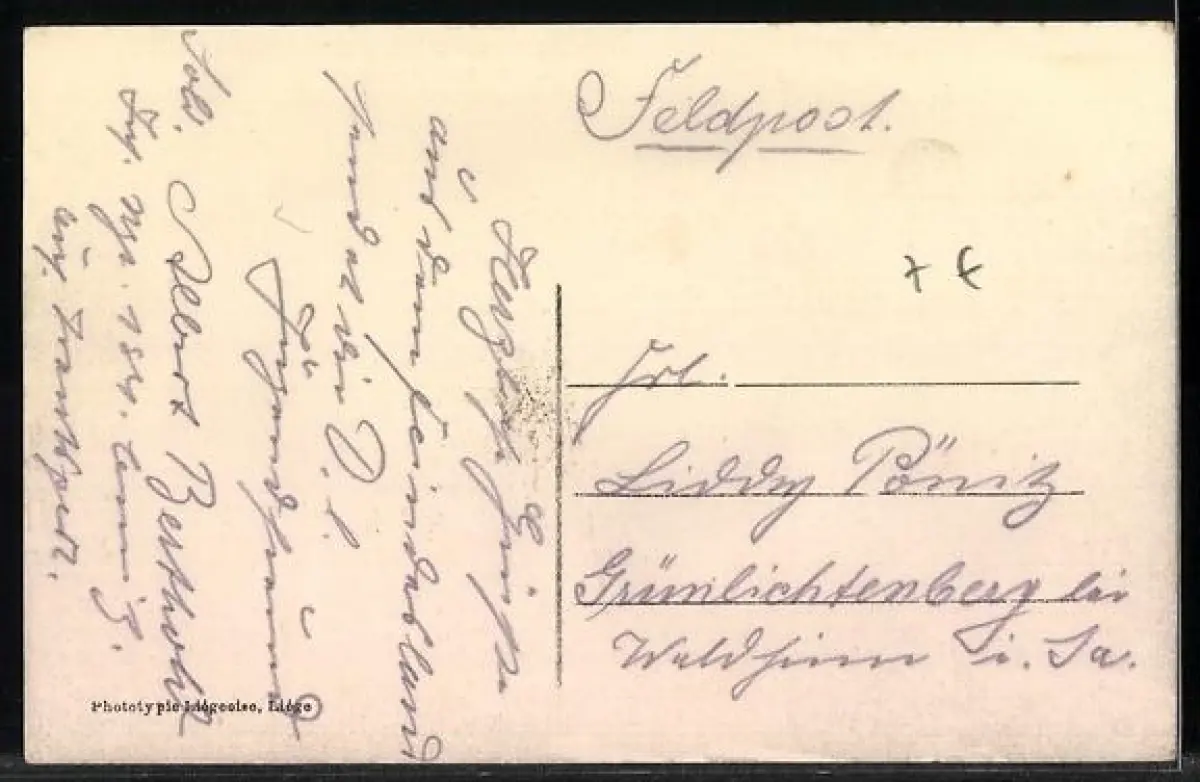 Feldpost.
Frl.
Liddy Pönitz
Grünlichtenberg bei
Waldheim i. Sa.
Herzliche Grüße
aus dem Feindesland
sendet Dir D. l.
Jugendfreund
Sold.
Albert Berthold
Inf. Rgt. 184.
auf Transport.
Phototypie Liégeoise, Liége